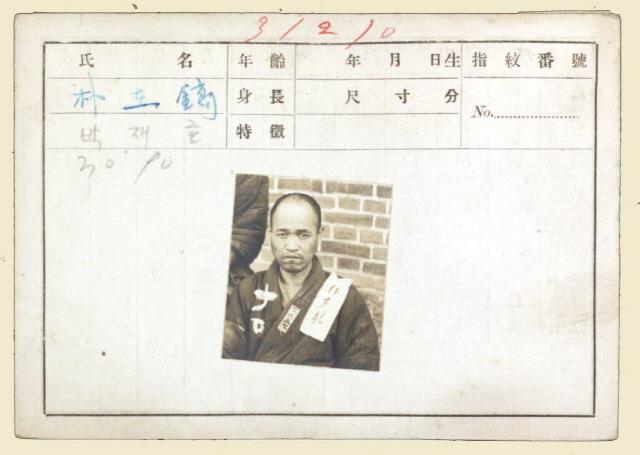 31210
氏名 年齡 年月日生 指紋番號
朴在鎬 身長 尺寸分 No.
박재호 特徵